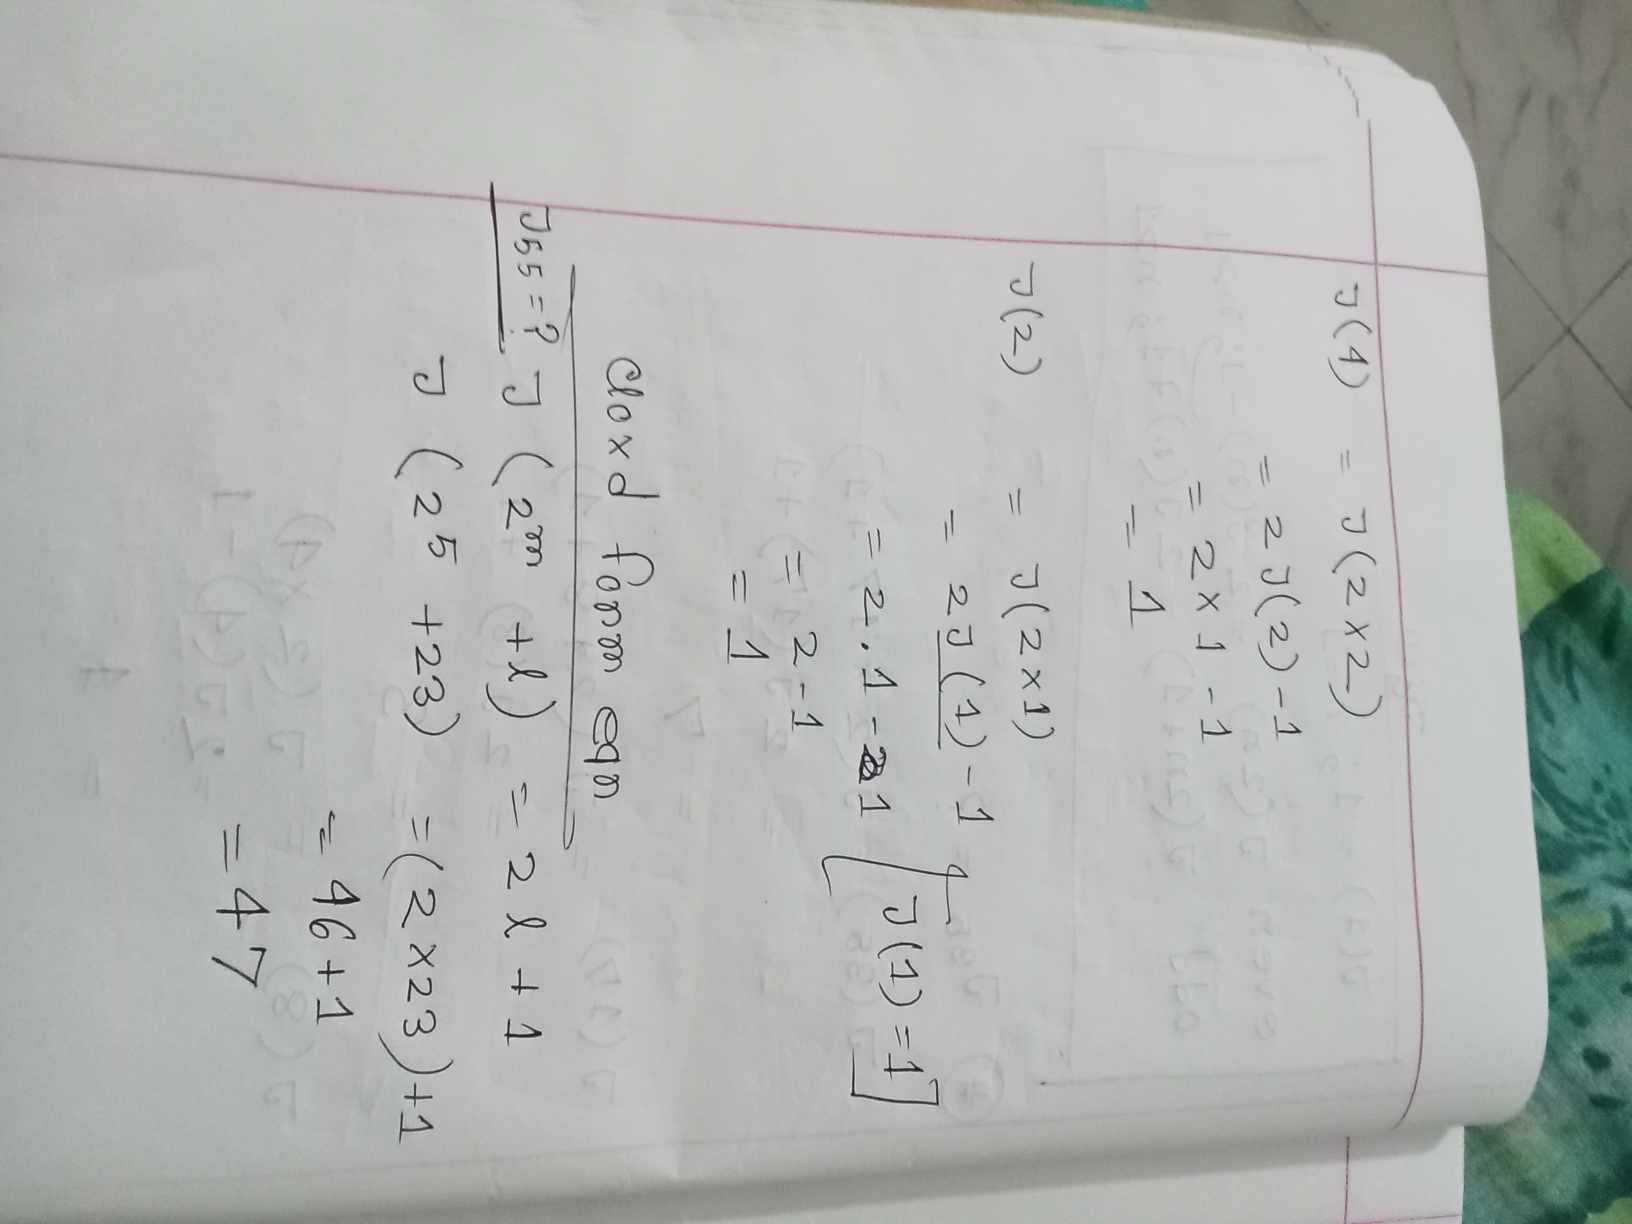 J(4) = J(2×2)
= 2J(2)-1
= 2×1-1
= 1
J(2) = J(2×1)
= 2J(1)-1
= 2.1-1 [J(1)=1]
= 2-1
= 1
Cloxd form eqn
J55=? J(2^m +l) = 2l+1
J(2^5 +23) = (2×23)+1
= 46+1
= 47